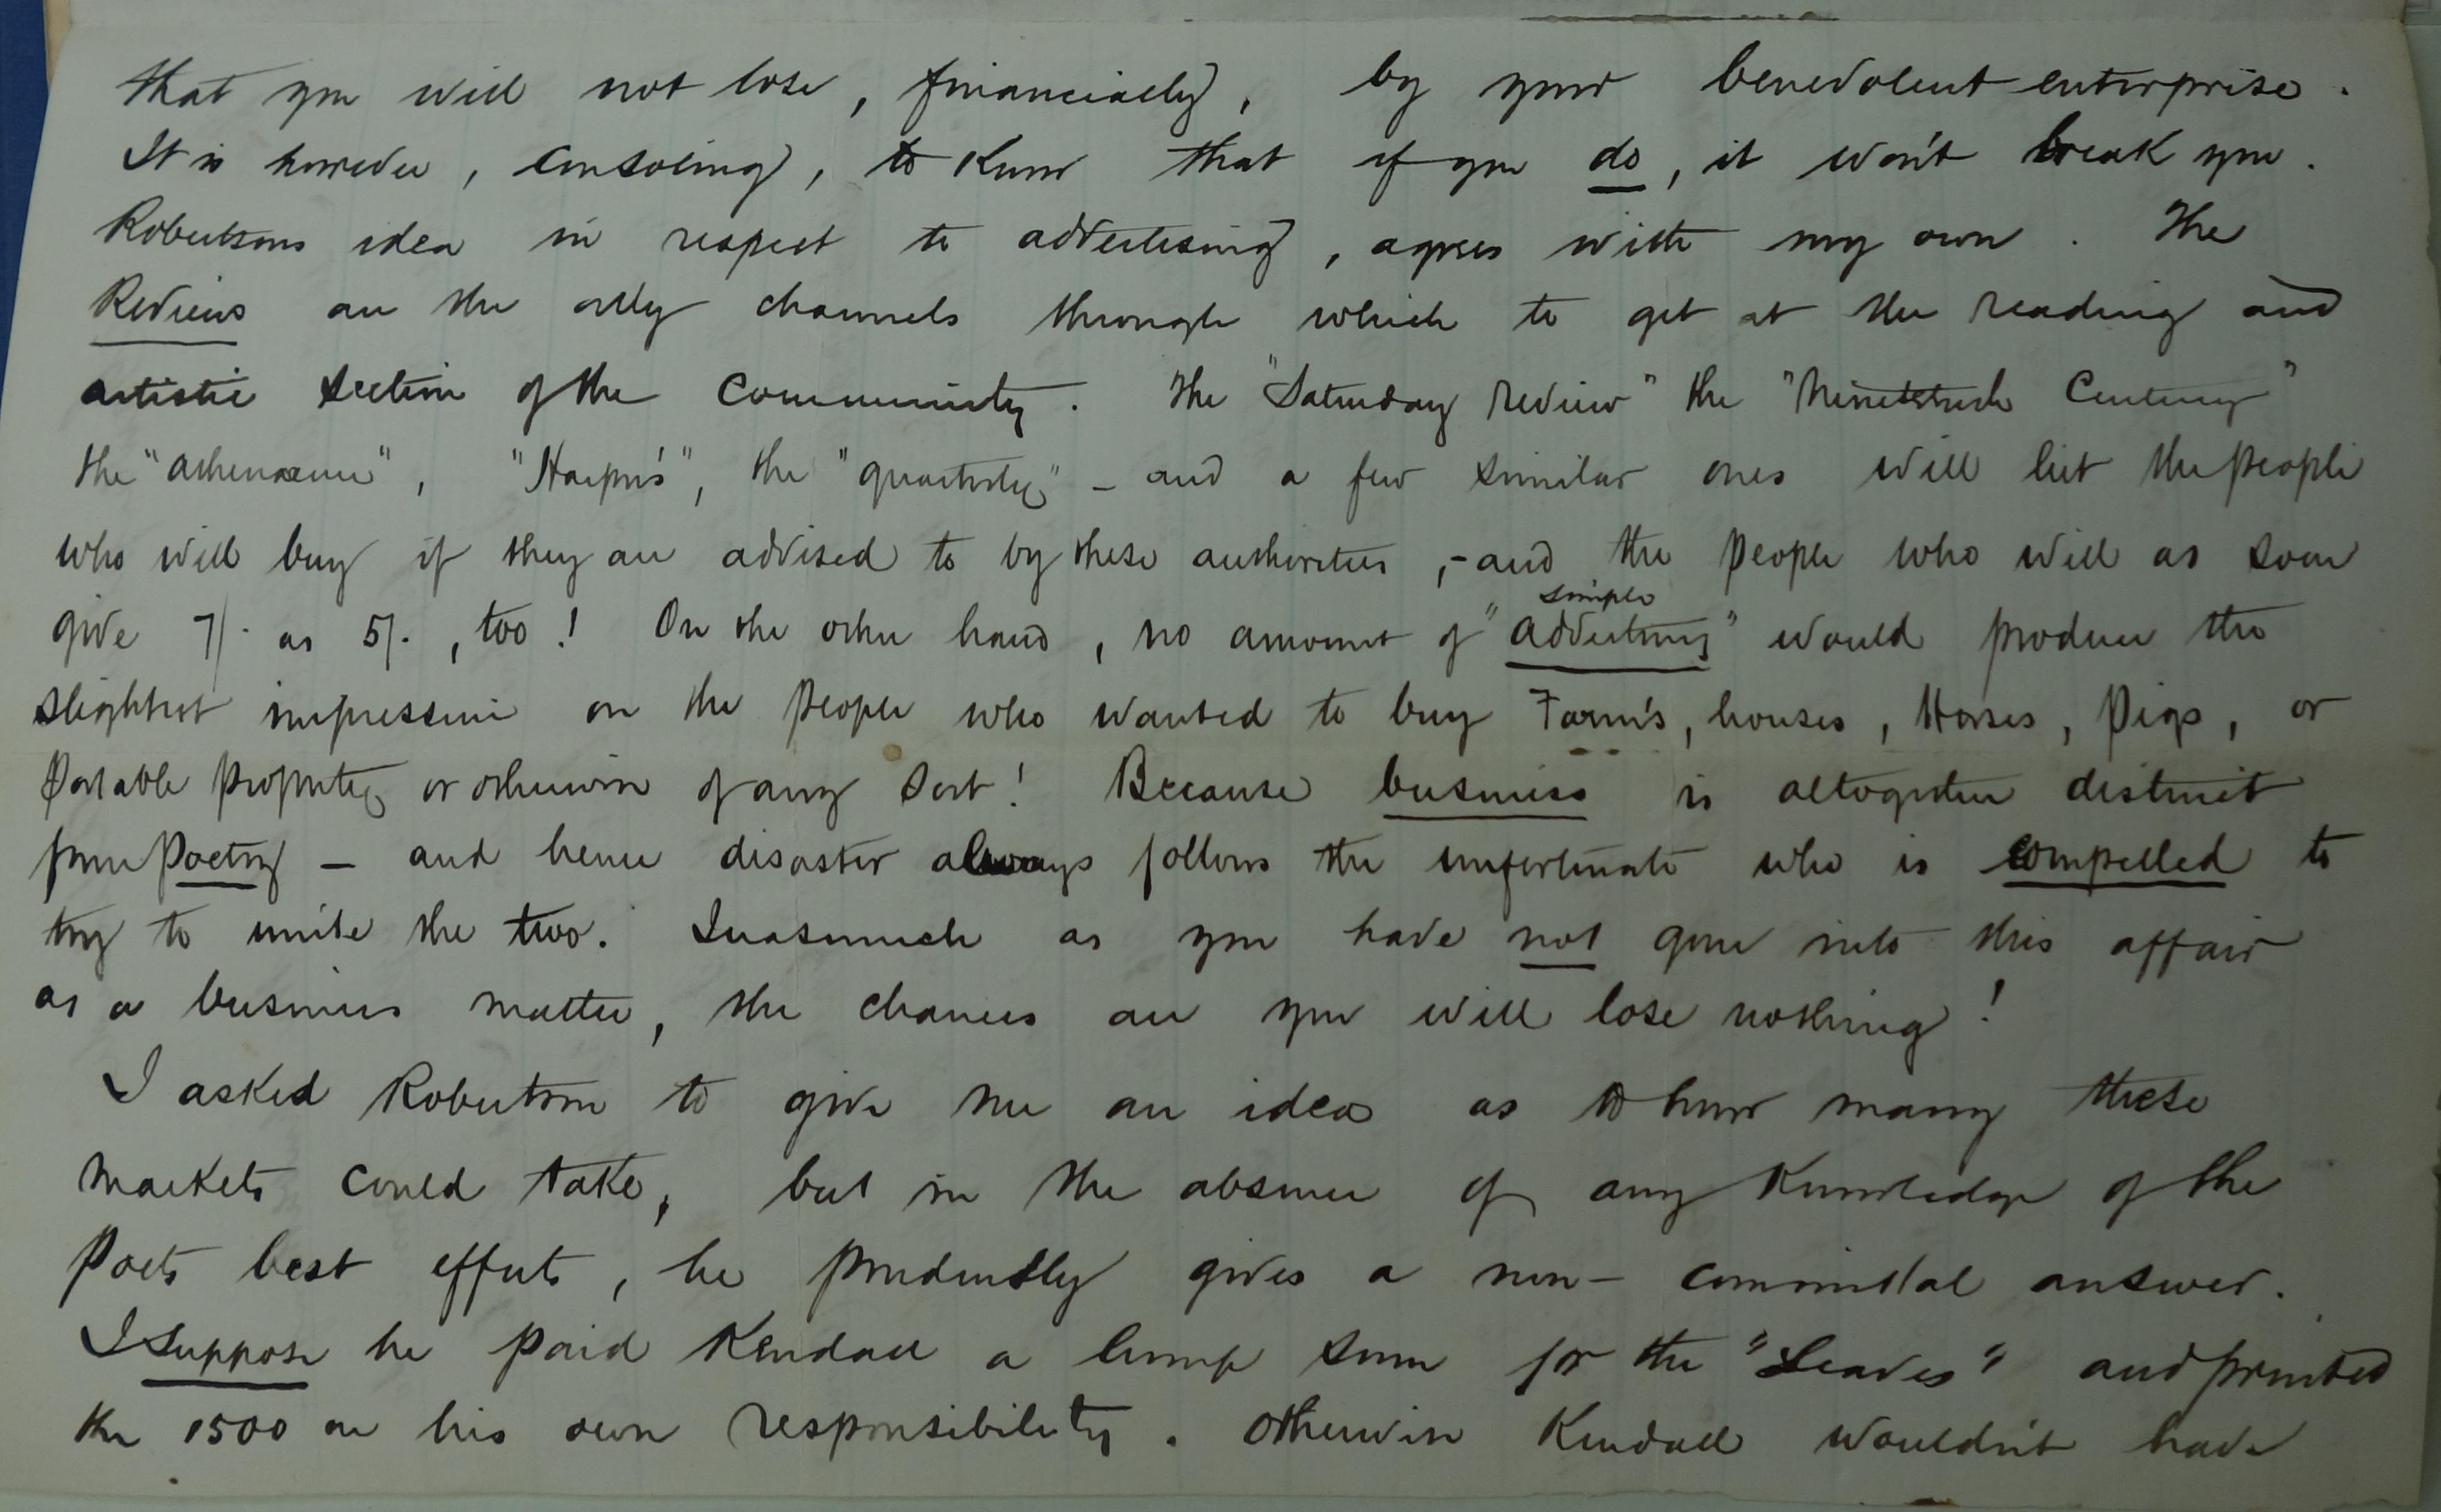 that you will not lose, financially, by your benevolent enterprise.
It is however, consoling, to know that if you do, it won't break you.
Robertsons idea in respect to advertising, agrees with my own. The
Reviews are the only channels through which to get at the reading and
artistic section of the community. The "Saturday Review" the "Nineteenth Century"
the "Athenaeum", "Harper's", the "quarterly" - and a few similar ones will hit the people
who will buy if they are advised to by these authorities, - and the people who will as soon
simple
give 7/. as 5/., too! On the other hand, no amount of "advertising" would produce the
slightest impression on the people who wanted to buy Farm's, houses, Horses, Pigs, or
Portable property or otherwise of any sort! Because business is altogether distinct
from Poetry - and hence disaster always follows the unfortunate who is compelled to
try to unite the two. Inasmuch as you have not gone into this affair
as a business matter, the chances are you will lose nothing!
I asked Robertson to give me an idea as to how many these
markets could take, but in the absence of any knowledge of the
Poets best efforts, he prudently gives a non-committal answer.
I suppose he paid Kendall a lump sum for the "Leaves" and printed
the 1500 on his own responsibility. Otherwise Kendall wouldn't have